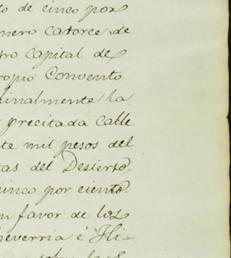 to de cinco por
nero catorce de
tro capital de
ropio Convento
inalmente la
precitada Calle
te mil pesos del
tas del Desierto.
inco por ciento.
n favor de los
heverria é Hi-